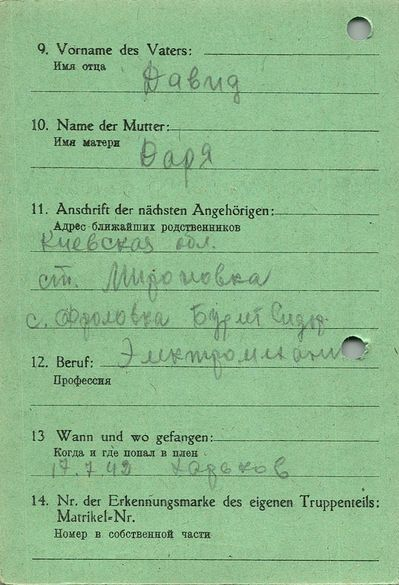 9. Vorname des Vaters:
Имя отца
Давид
10. Name der Mutter:
Имя матери
Даря
11. Anschrift der nächsten Angehörigen:
Адрес ближайших родственников
Киевская обл.
ст. Мироновка
с. Фроловка
12. Beruf: Электромехани
Профессия
13 Wann und wo gefangen:
Когда и где попал в плен
17.7.42 Харьков
14. Nr. der Erkennungsmarke des eigenen Truppenteils:
Matrikel-Nr.
Номер в собственной части